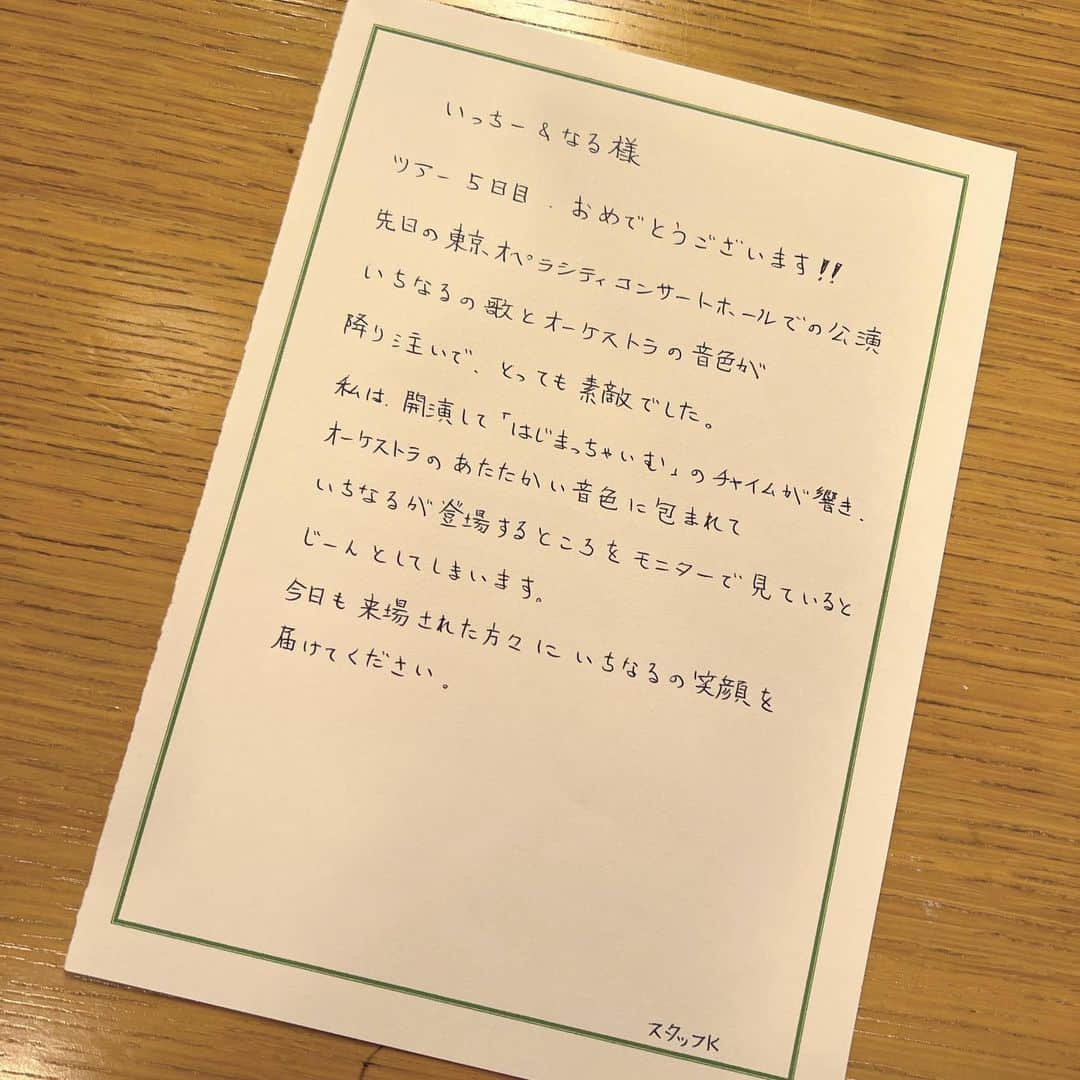 いっちー&なる様
ツアー5日目、おめでとうございます!!
先日の東京オペラシティコンサートホールでの公演
いちなるの歌とオーケストラの音色が
降り注いで、とっても素敵でした。
私は、開演して「はじまっちゃいむ」のチャイムが響き、
オーケストラのあたたかい音色に包まれて
いちなるが登場するところをモニターで見ていると
じーんとしてしまいます。
今日も来場された方々にいちなるの笑顔を
届けてください。
スタッフK